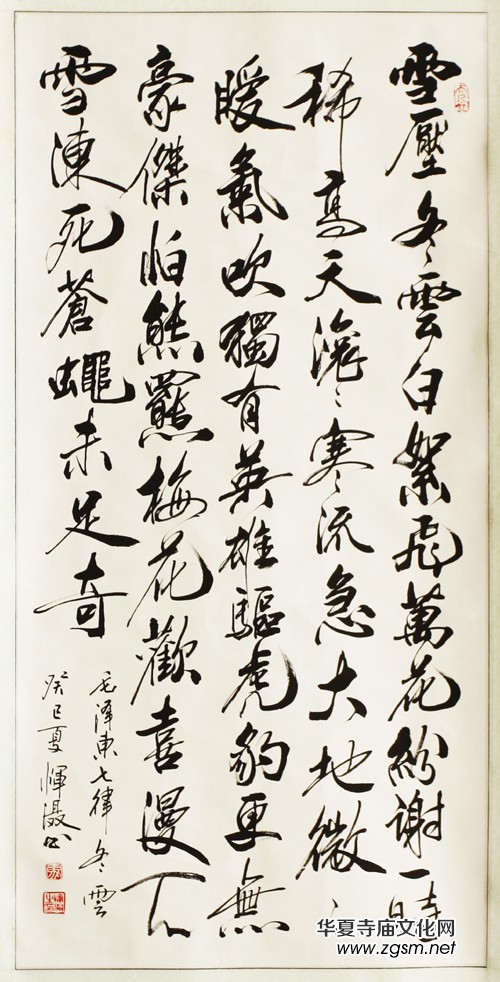 雪壓冬雲白絮飛萬花紛謝一時
稀高天滾々寒流急大地微々
暖氣吹獨有英雄驅虎豹更無
豪傑怕熊羆梅花歡喜漫天
雪凍死蒼蠅未足奇
毛泽東七律冬雲
癸巳夏 书
华夏寺庙文化网
www.zgsm.net